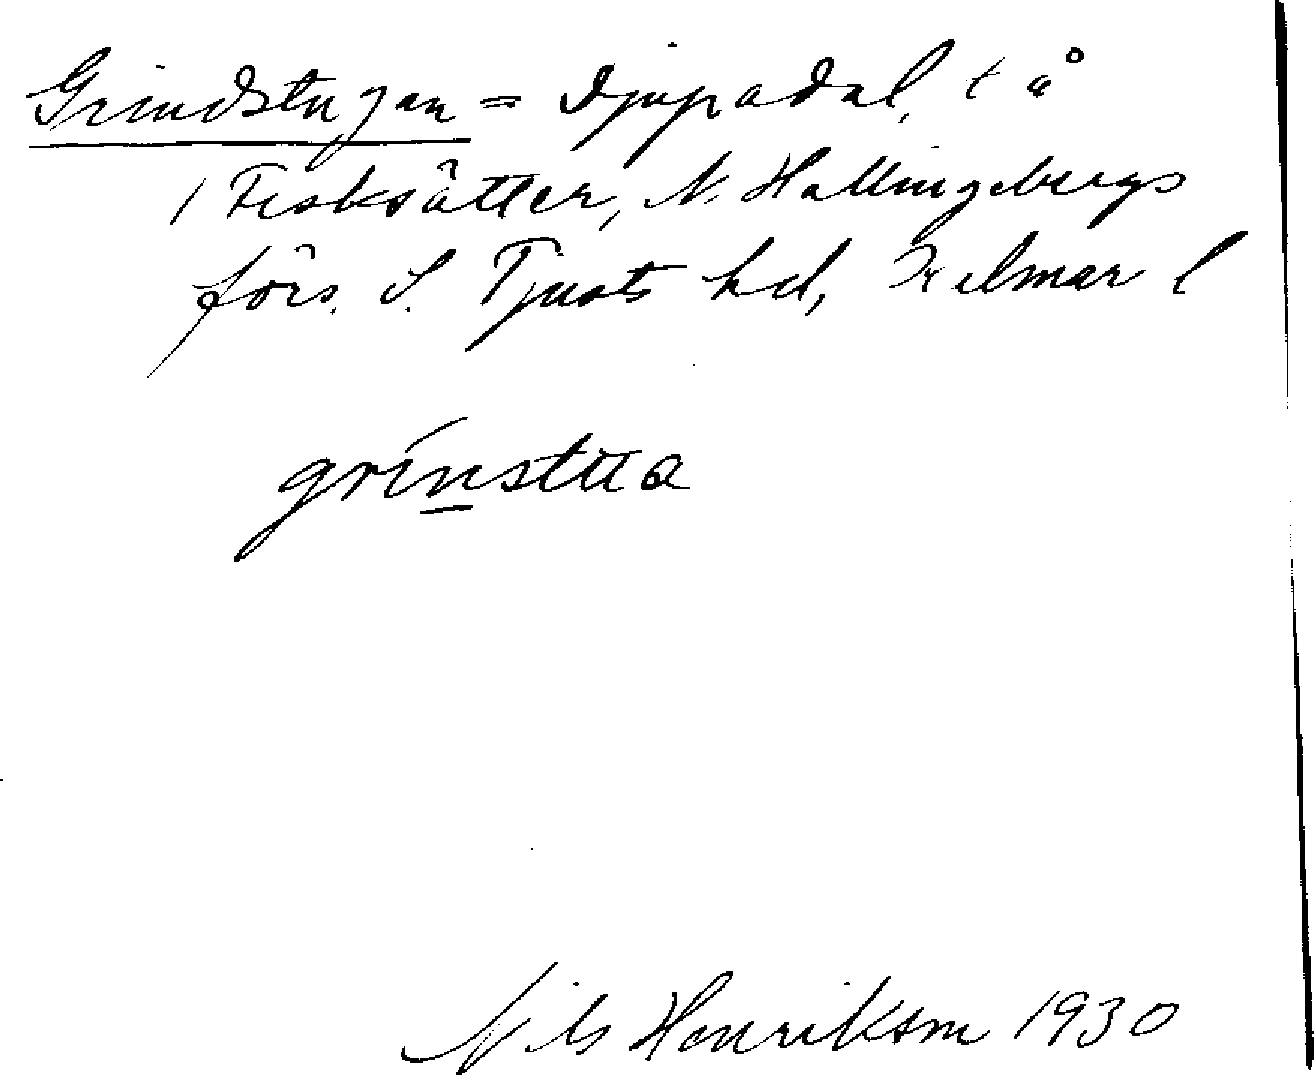 Grindstugan = Djupadal, t å
1 Fisksätter, N. Hallingebergs
förs. S. Tjusts hd, Kalmar l
grinstua
Nils Henrikson 1930